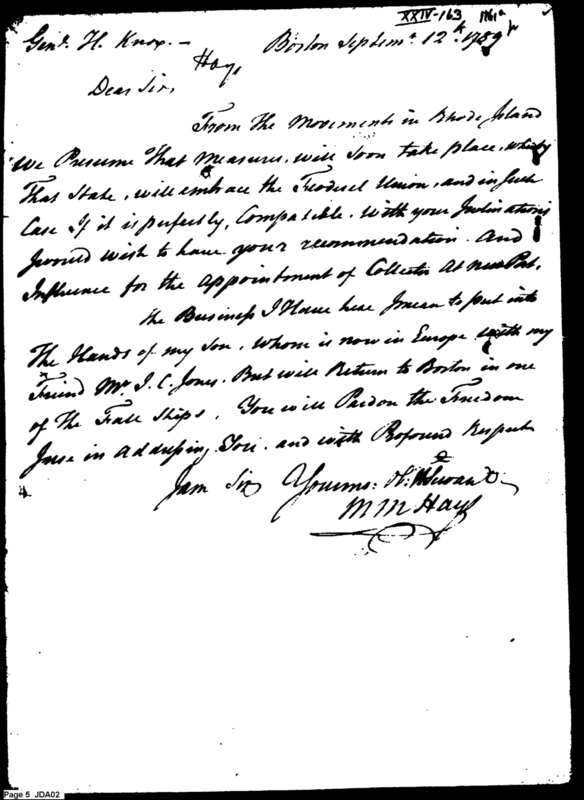 XXIV-163
Genl. H. Knox.— Boston Septemr. 12th. 1789
Hays
Dear Sir,
From the Movements in Rhode Island
We Presume That Measures, will Soon take place, whereby
That State, will embrace the Foederel Union, and in Such
Case If it is perfectly, Compatible. With your Inclinations
I would wish to have your recommendation. And
Influence for the appointment of Collector At Newport,
the Business I Have here I mean to put into
The Hands of my Son, Whom is now in Europe with my
Friend Mr. J. C. Jones. But will Return to Boston in one
of The Fall Ships. You will Pardon the Freedom
I use in addressing You. and with Profound Respect
I am Sir Your mo: H: Servant
M M Hays
Page 5 JDA02